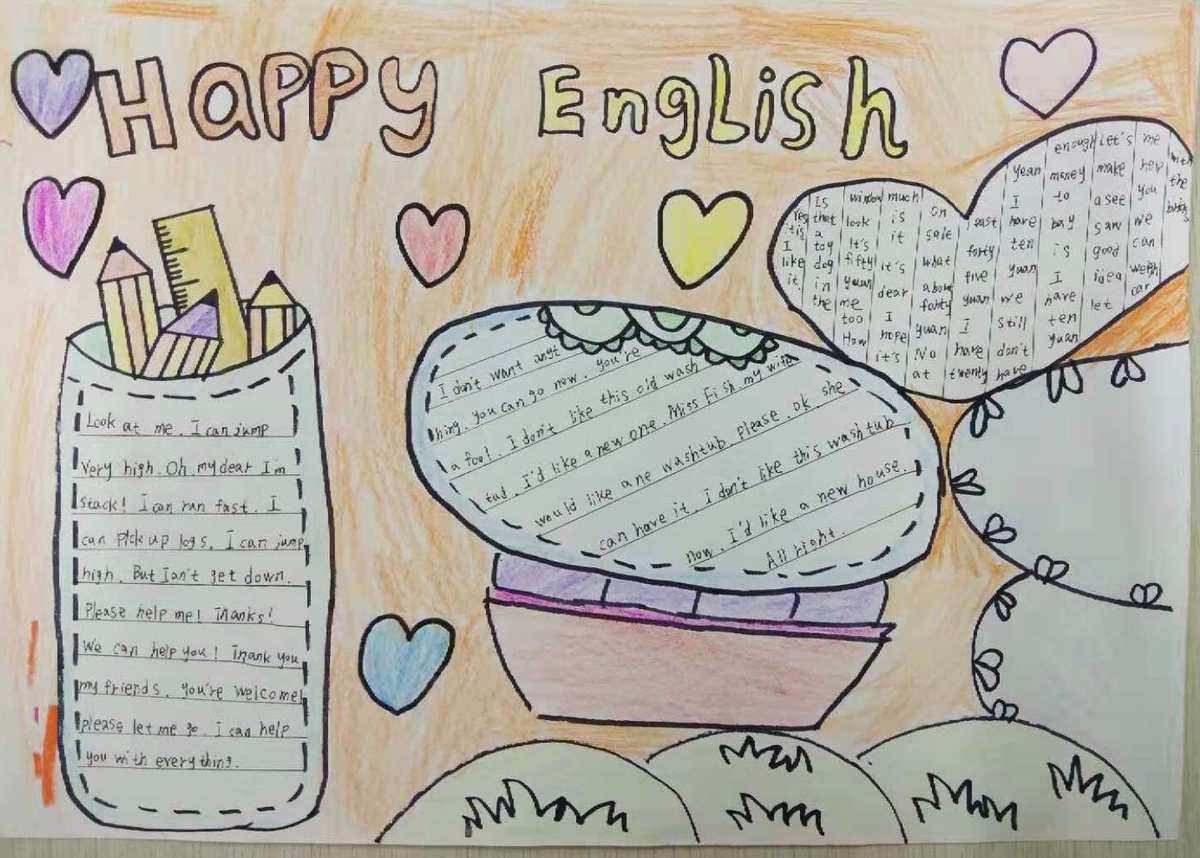 Happy English
Look at me. I can jump
very high. Oh my dear I'm
stack! I can ran fast. I
can pick up logs. I can jump
high. But Ian't get down.
Please help me! Thanks!
We can help you! Thank you
my friends. you're welcome!
please let me go. I can help
you with everything.
I don't want anyt
hing. you can go now. you're
a fool. I don't like this old wash
tud. I'd like a new one. Miss Fish. my wife
would like a ne washtub. Please. ok. she
can have it. I don't like this washtub
now. I'd like a new house.
All right.
Yes it is I like it.
Is that a toy dog in the
window look It's fifty yuan me too How
much is it it's dear I hope it's
on sale what about forty yuan No at
east forty five yuan I have twenty
yean I have ten yuan we still don't have
enough money to bay is I have ten yuan
Let's make a see saw good idea let
me help you we can weigh car
with the